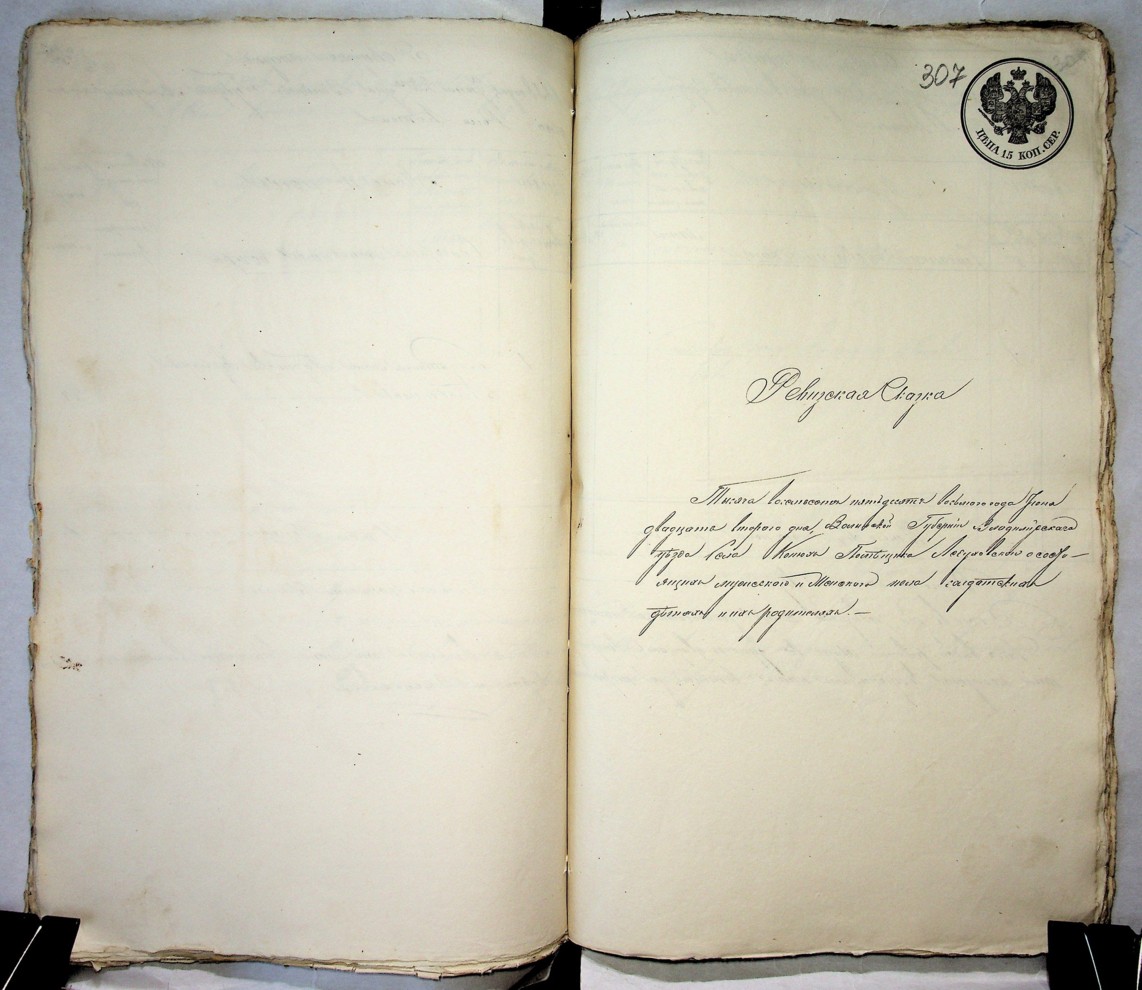 307
ЦѢНА 15 КОП. СЕР.
Ревизская Сказка
Тысяча восемьсотъ пятьдесятъ восьмого года Іюня
двадцать второго дня Волынской Губерніи Владимірскаго
уѣзда села Помѣщика о состо-
ящихъ мужескаго и Женскаго пола солдатскихъ
дѣтяхъ и ихъ родителяхъ. —